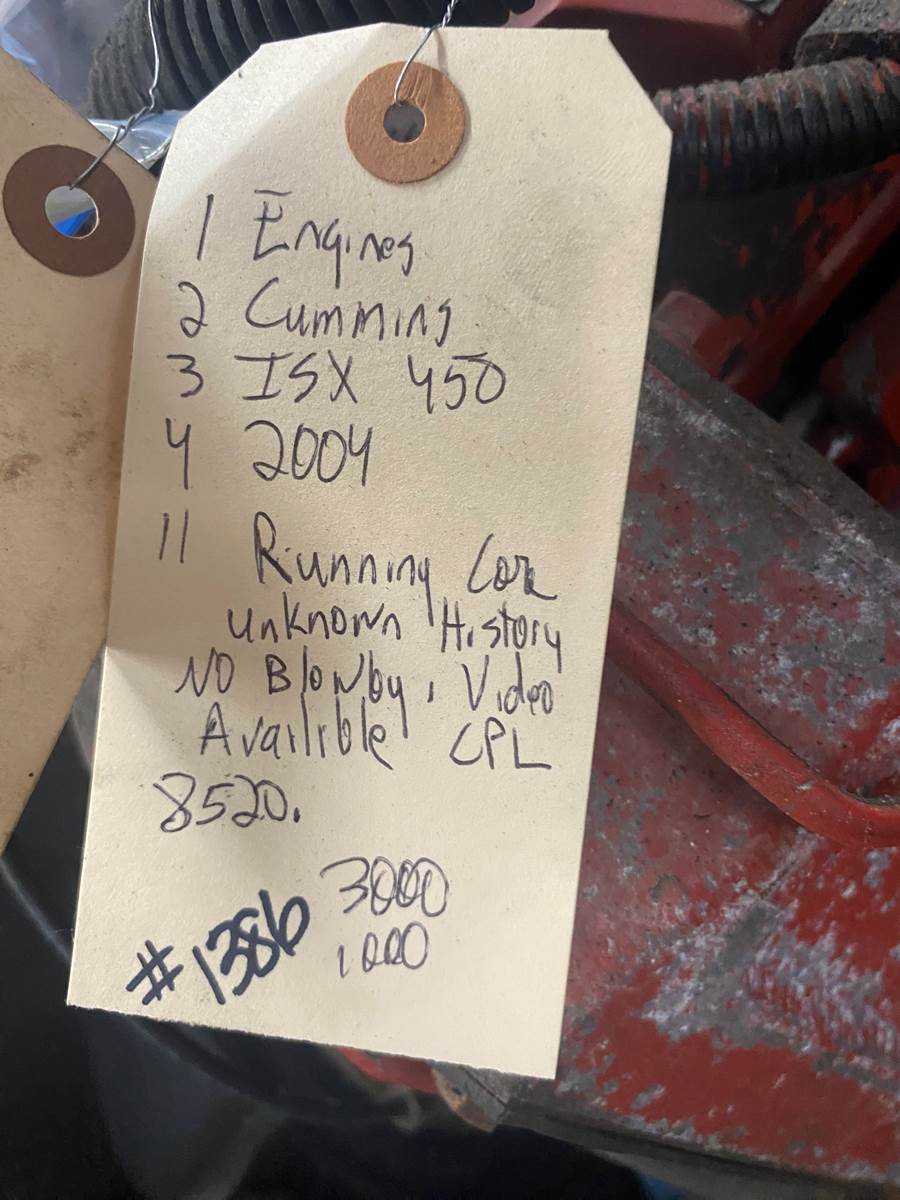 1 Engines
2 Cummins
3 ISX 450
4 2004
11 Running Core
unknown History
NO Blowby, Video
Availible CPL
8520.
3000
#1386
1000